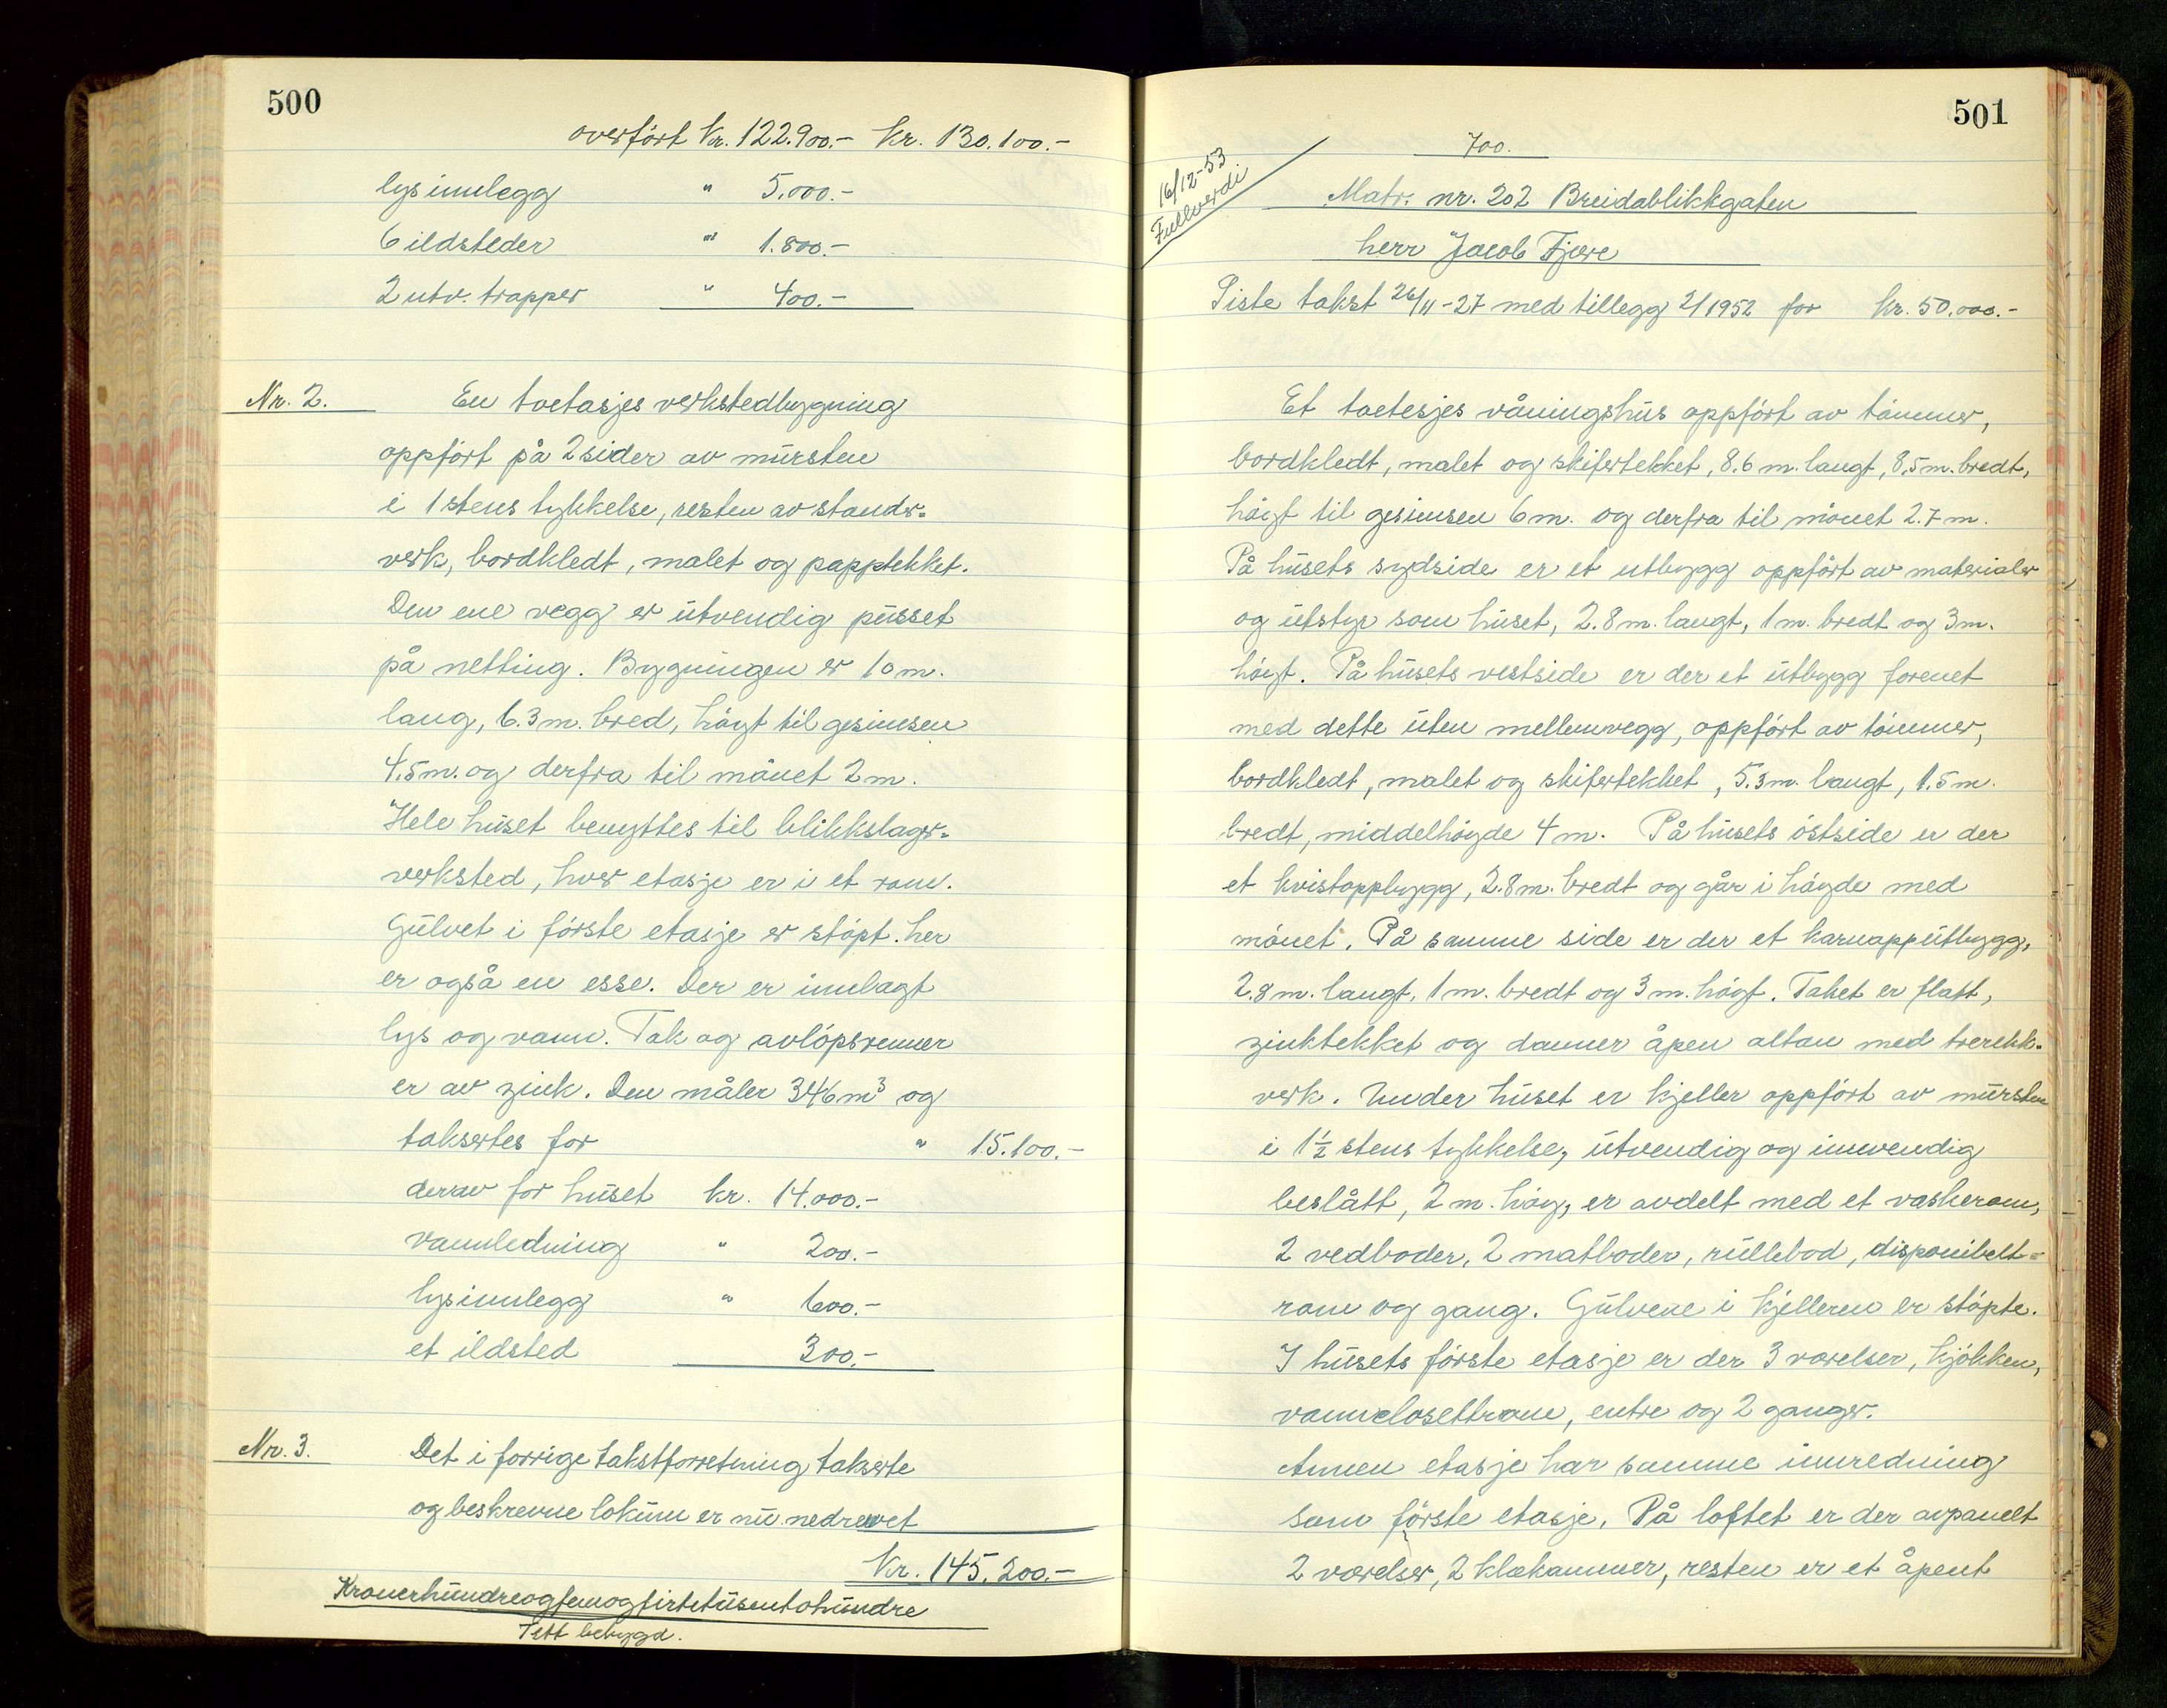 500
overført kr. 122.900.- kr. 130.100.-
lysinnlegg " 5.000.-
6 ildsteder " 1.800.-
2 utv. trapper " 400.-
Nr. 2. En toetasjes verkstedbygning
oppført på 2 sider av mursten
i 1 stens tykkelse, resten av stender=
verk, bordkledt, malet og papptekket.
Den ene vegg er utvendig pusset
på netting. Bygningen er 10 m.
lang, 6.3 m. bred, høyt til gesimsen
4.5 m. og derfra til mønet 2 m.
Hele huset benyttes til blikkslager=
verksted, hver etasje er i et rom.
Gulvet i første etasje er støpt. her
er også en esse. Der er innlagt
lys og vann. Tak og avløpsrenner
er av zink. Den måler 346 m³ og
taksertes for " 15.100.-
derav for huset kr. 14.000.-
vannledning " 200.-
lysinnlegg " 600.-
et ildsted 300.-
Nr. 3. Det i forrige takstforretning takserte
og beskrevne lokum er nu nedrevet
Kr. 145.200.-
Kronerhundreogfemogfirtitusentohundre
Tett bebygd.
501
700.
16/12-53
Fullverdi
Matr. nr. 202 Breidablikkgaten
herr Jacob Fjære
Siste takst 26/11-27 med tillegg 2/1952 for kr. 50.000.-
Et toetesjes våningshus oppført av tømmer,
bordkledt, malet og skifertekket, 8.6 m. langt, 8.5 m. bredt,
høyt til gesimsen 6 m. og derfra til mønet 2.7 m.
På husets sydside er et utbygg oppført av materialer
og utstyr som huset, 2.8 m. langt, 1 m. bredt og 3 m.
høyt. På husets vestside er der et utbygg forenet
med dette uten mellemvegg, oppført av tømmer,
bordkledt, malet og skifertekket, 5.3 m. langt, 1.5 m.
bredt, middelhøyde 4 m. På husets østside er der
et kvistoppbygg, 2.8 m. bredt og går i høyde med
mønet. På samme side er der et karnapputbygg,
2.8 m. langt, 1 m. bredt og 3 m. høyt. Taket er flatt,
zinktekket og danner åpen altan med trerekk=
verk. Under huset er kjeller oppført av mursten
i 1½ stens tykkelse, utvendig og innvendig
beslått, 2 m. høy, er avdelt med et vaskerom,
2 vedboder, 2 matboder, rullebod, disponibelt=
rom og gang. Gulvene i kjelleren er støpte.
I husets første etasje er der 3 værelser, kjøkken,
vannclosettrom, entre og 2 ganger.
Annen etasje har samme innredning
som første etasje. På loftet er der avpanelt
2 værelser, 2 klækammer, resten er et åpent